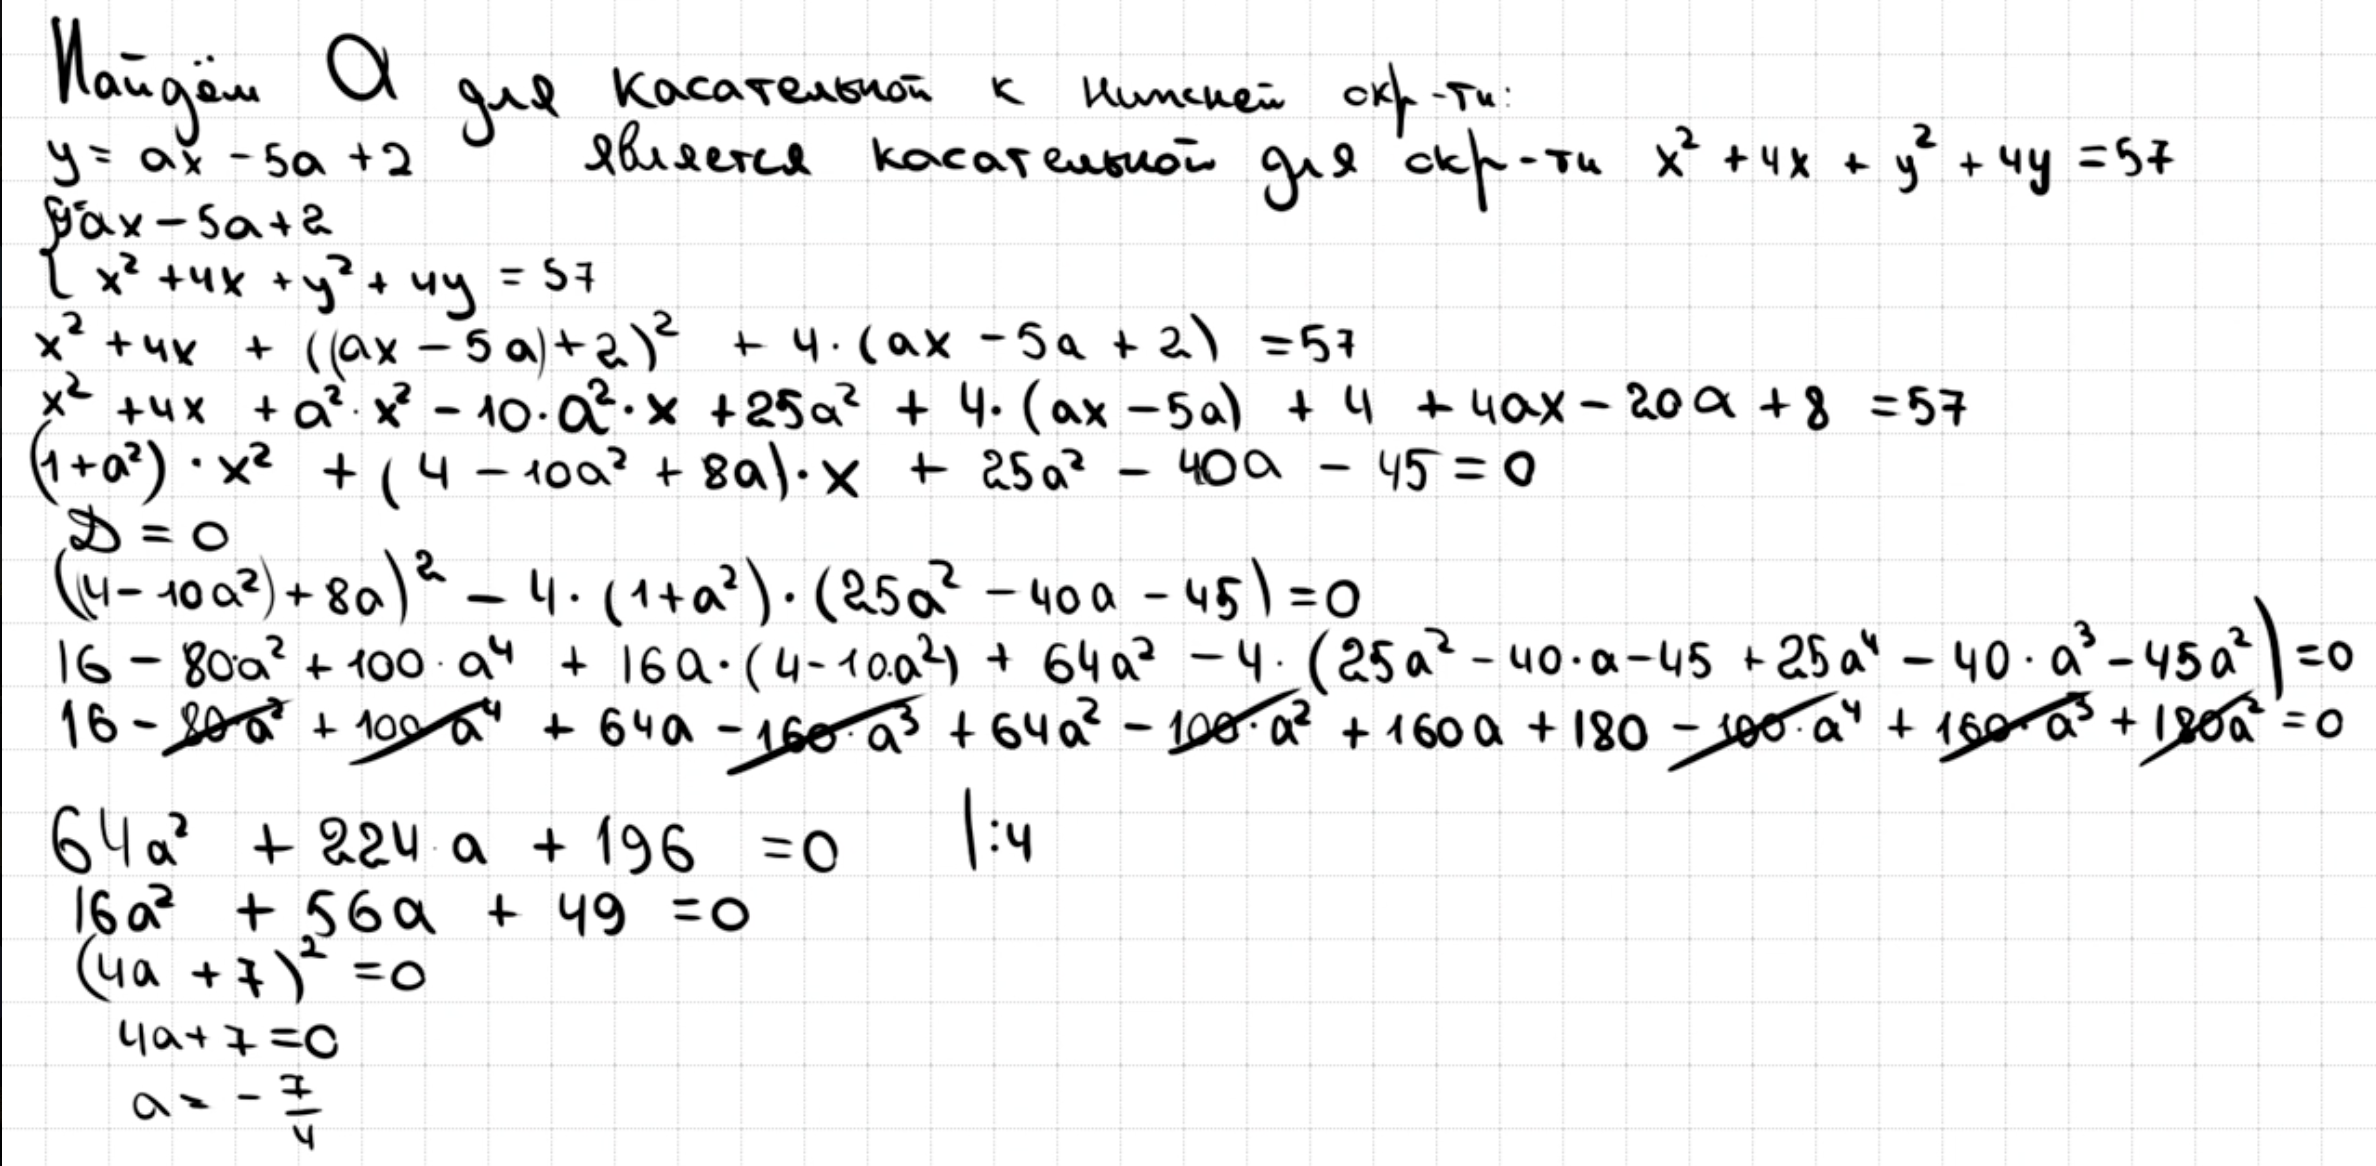 Найдём a для касательной к нижней окр-ти:
y = ax - 5a + 2 является касательной для окр-ти x² + 4x + y² + 4y = 57
{ y = ax - 5a + 2
{ x² + 4x + y² + 4y = 57
x² + 4x + ((ax - 5a) + 2)² + 4·(ax - 5a + 2) = 57
x² + 4x + a²·x² - 10·a²·x + 25a² + 4·(ax - 5a) + 4 + 4ax - 20a + 8 = 57
(1 + a²)·x² + (4 - 10a² + 8a)·x + 25a² - 40a - 45 = 0
D = 0
((4 - 10a²) + 8a)² - 4·(1 + a²)·(25a² - 40a - 45) = 0
16 - 80·a² + 100·a⁴ + 16a·(4 - 10·a²) + 64a² - 4·(25a² - 40·a - 45 + 25a⁴ - 40·a³ - 45a²) = 0
16 - 80·a² + 100·a⁴ + 64a - 160·a³ + 64a² - 100·a² + 160a + 180 - 100·a⁴ + 160·a³ + 180a² = 0
64a² + 224·a + 196 = 0 |:4
16a² + 56a + 49 = 0
(4a + 7)² = 0
4a + 7 = 0
a = - 7/4